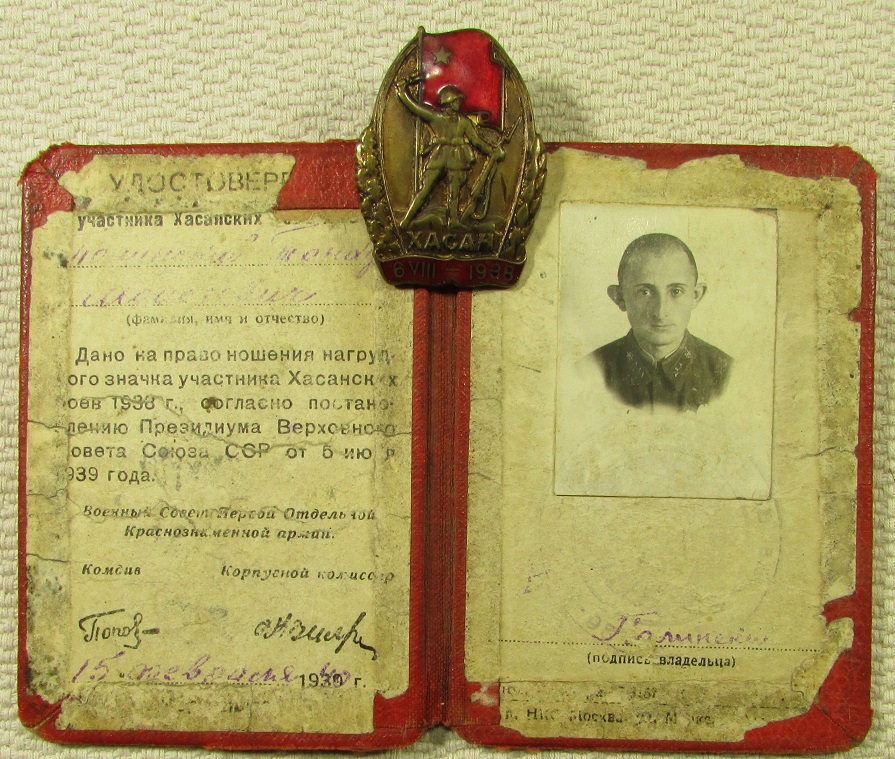 УДОСТОВЕР
участника Хасанских
(фамилия, имя и отчество)
Дано на право ношения нагруд-
ого значка участника Хасанск х
оев 1938 г., согласно постано-
лению Президиума Верховного
овета Союза ССР от 5 ию я
939 года.
Военный Совет Первой Отдельной
Краснознаменной армии.
Комдив Корпусной комиссар
Попов
15 февраля 1939 г.
ХАСАН
6 VIII – 1938
(подпись владельца)
3167
НКО Москва, ул. М